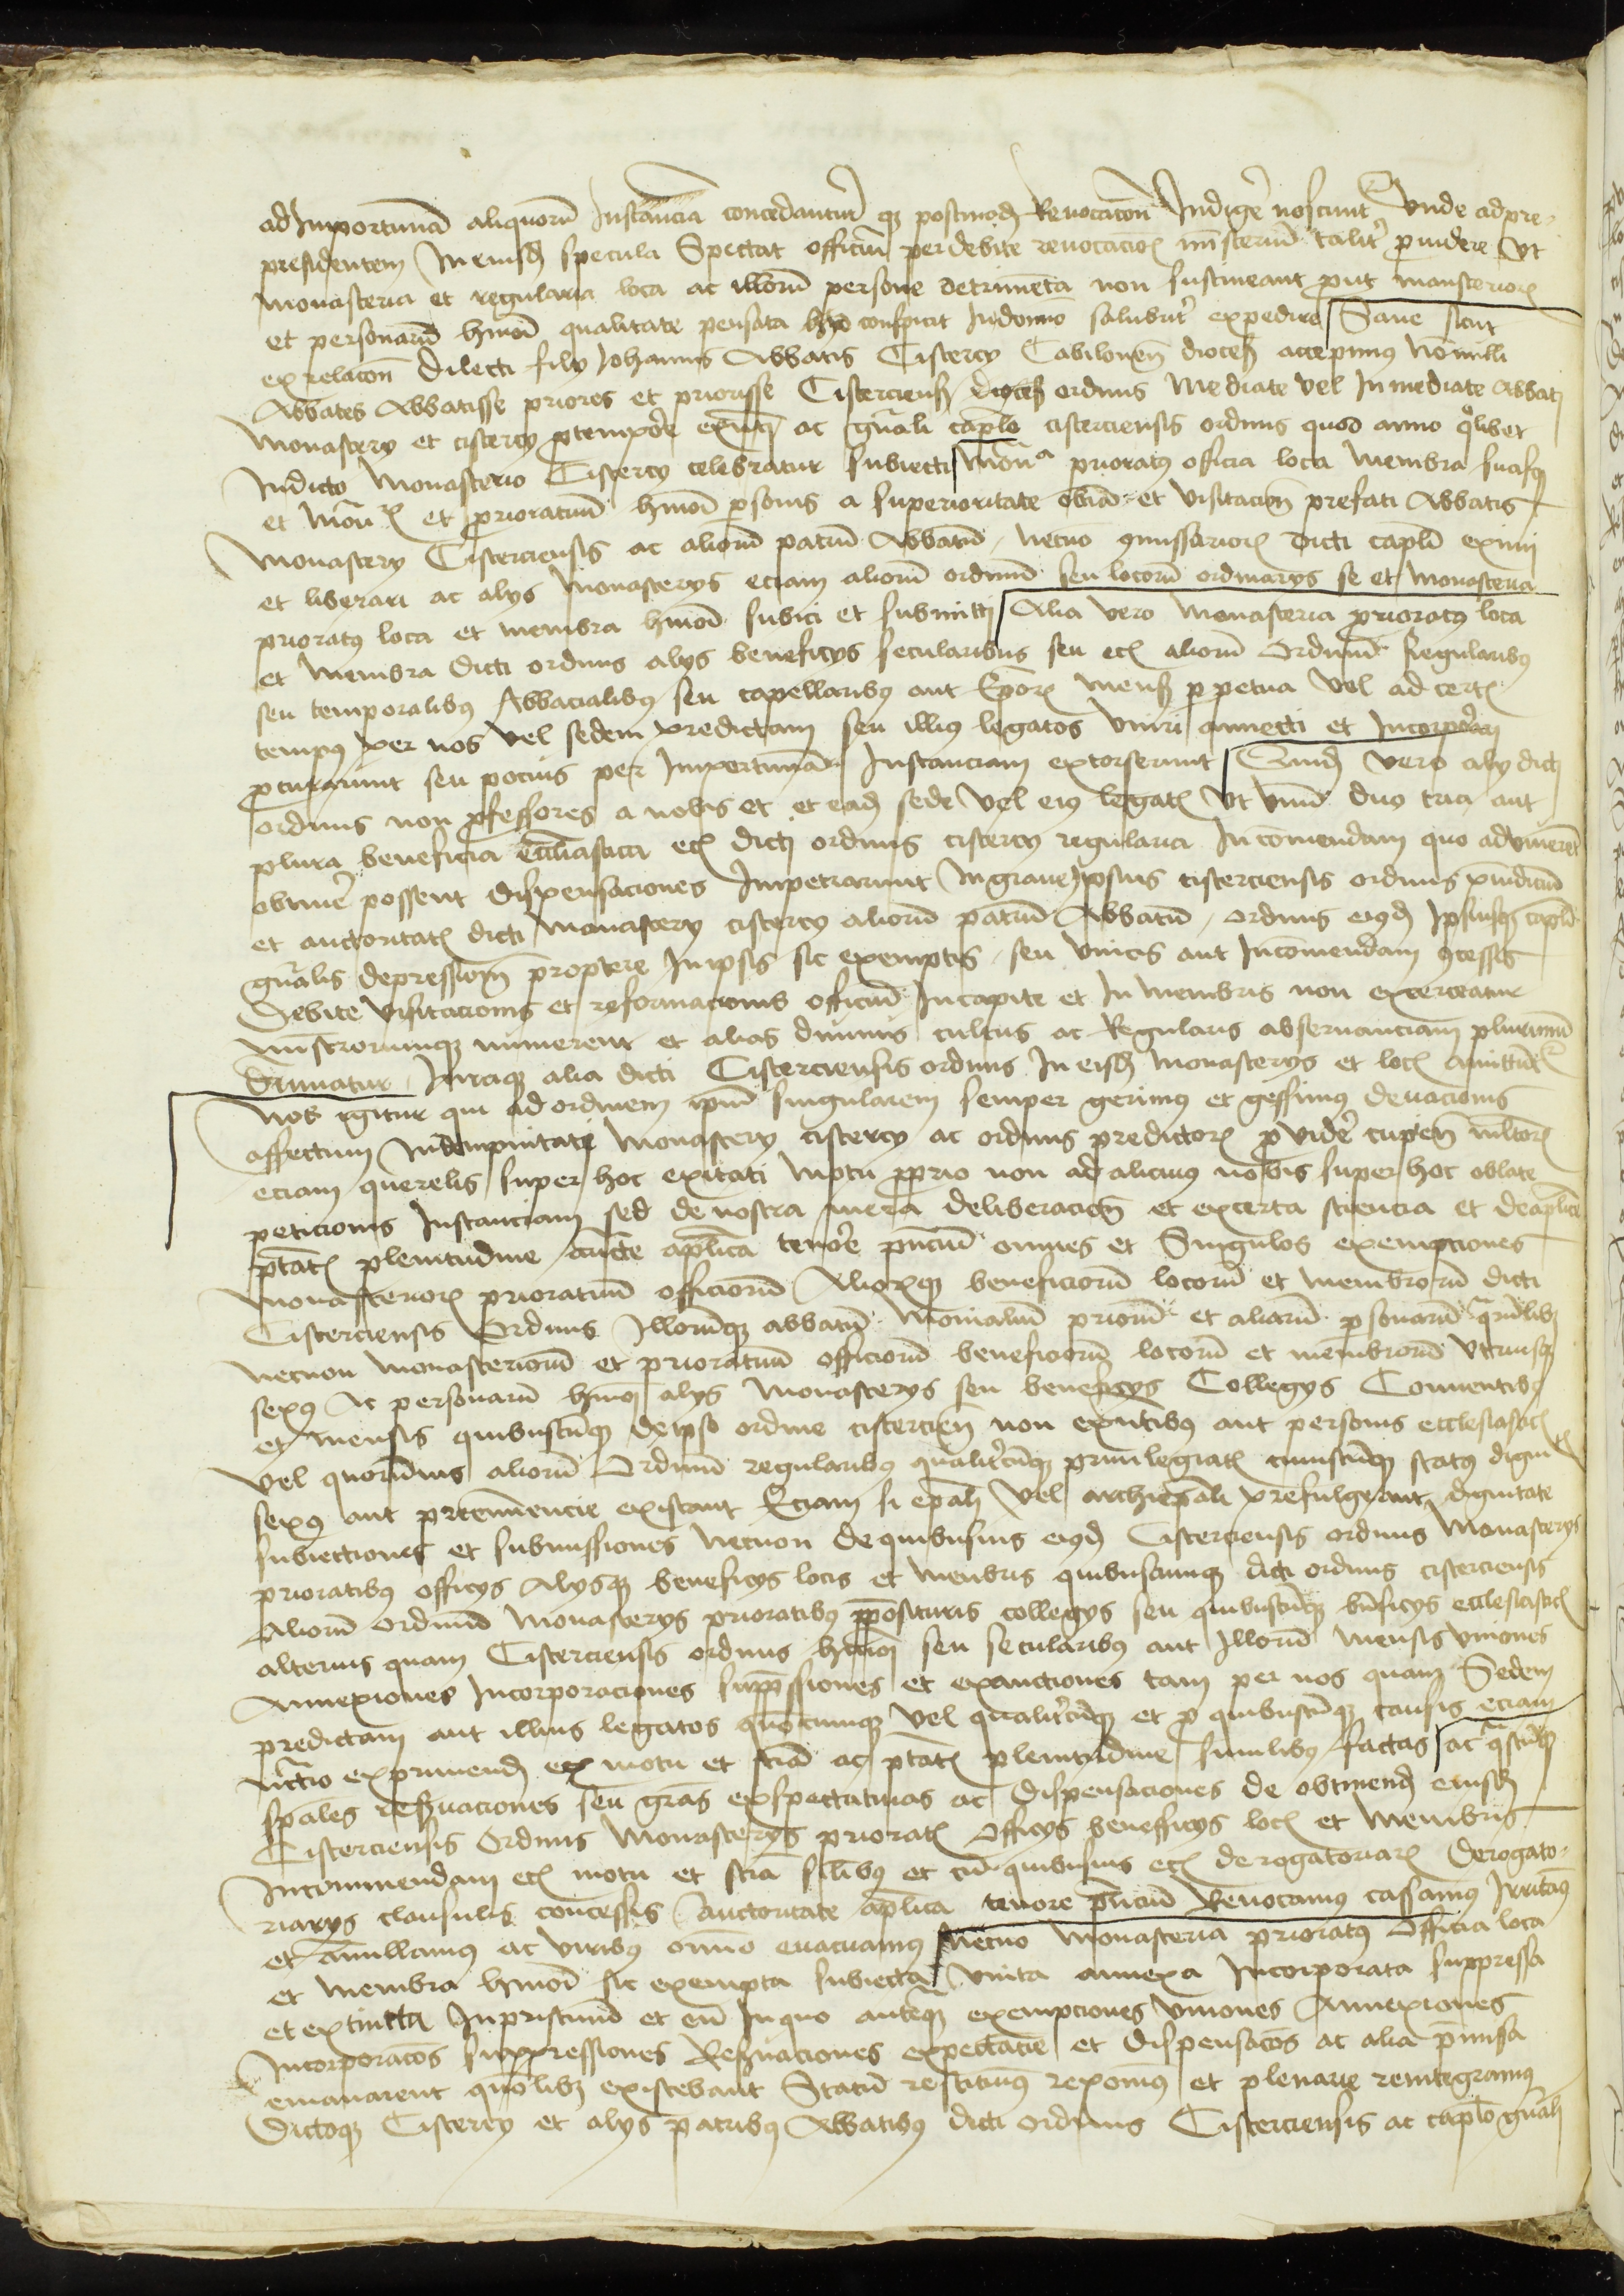 ad Importunā aliquorū Instancia concedantur q̄ postmod̄ Revocacōn Indigē noscunt᷑ Vnde ad pre-
presidentem In eiusd̄ specula Spectat officiū per debite revocacioꝝ mīsteriū talit᷑ ꝓuidere Vt
monasteria et regularia loca ac illorū persone detrimēta non sustineant ꝓut monasterioꝝ
et personarū hmōi qualitate pensata conspicit In domīo salubrit᷑ expedire Sane sicut
ex relacōn Dilecti filij Johannis Abbatis Cistercij Cabilonen̄ dioces̄ accepimus Nonnulli
Abbates Abbatisse priores et priorisse Cisterciens̄ dioces̄ ordinis Mediate vel Inmediate Abbati
Monasterij et cistercij ꝓ tempōre exn̄ti ac gn̄ali caplo cisterciensis ordinis quod anno qͦlibet
In dicto Monasterio Cistercij celebratur subiecti Monᵃ prioratus officia loca Membra suaſqꝫ
et Monꝝ et prioratuū hmōi ꝑsonis a superioritate obiā et visitacōn prefati Abbatis
Monasterij Cisterciensis ac aliorū patrū Abbatū, necnō ꝯmissarioꝝ dicti capli eximi
et liberari ac alijs Monasterijs eciam aliorū ordinū seu locorū ordinarijs se et Monasteria
prioratus loca et membra hmōi subici et submitti Alia vero Monasteria prioratus loca
et Membra dicti ordinis alijs beneficijs secularibus seu ecꝫ aliorū Ordinū Regularibꝰ
seu temporalibꝰ Abbacialibꝰ seu capellaribꝰ aut Ep̄oꝝ mens̄ ꝑpetua Vel ad certꝫ
tempus per nos vel sedem predictam seu illius legatos vniri annecti et Incorporari
ꝓcurarunt seu pocius per Importunā Instanciam extorserunt vero alij dicti
ordinis non ꝓfessores a nobis et et ead̄ sede vel eius legatꝫ Vt vnū duo tria aut
plura beneficia eccl̄iastica ecꝫ dicti ordinis cistercij regularia In comendam quo aduiuerēt
obtinē possent dispensaciones Impetrarunt In graue Ipsius cisterciensis ordinis p̄iudiciū
et auctoritatꝫ dicti Monasterij cistercij aliorū patrū Abbatū, ordinis eiusd̄ Ipsiusqꝫ capli
gn̄alis depressiōn propterē In ipsis sic exemptis, seu vnitis aut In comendam ꝯcessis
Debite visitacionis et reformacionis officiū In capite et In membris non exerceatur
mīstrorumqꝫ numerent᷑ et alias diuinis cultus ac Regularis obseruanciam plurimū
diminuatur Iuraqꝫ alia dicti Cisterciensis ordinis In eisd̄ Monasterijs et locꝫ amittūt᷑
Nos igitur qui ad ordinem ipm̄ singularem semper gerimus et gessimus deuacionis
affectum Indempnitati Monasterij cistercij ac ordinis predictoꝝ ꝓuidē cupien̄ mltoꝝ
eciam querelis super hoc exitati Motu ꝓprio non ad alicuius nobis super hoc oblate
peticionis Instanciam sed de nostra mera deliberaciōn et ex certa sciencia et de aplice
ptātꝫ plenitudine auc̄te aplica tenōre pn̄ciū omnes et Singulos exempciones
Monasterioꝝ prioratuū officiorū Alioꝝqꝫ beneficiorū locorū et membrorū dicti
Cisterciensis Ordinis Illorūqꝫ abbatū Monialiū priorū et aliarū ꝑsonarū q̄rūlibꝫ
necnon Monasteriorū et prioratuū officiorū beneficiorū locorū et membrorū vtriusqꝫ
sexꝰ Ac personarū hmōi alijs Monasterijs seu beneficijs Collegijs Conuentibꝰ
et Mensis quibuscūqꝫ de ipso ordine cistercien̄ non exn̄tibꝰ aut personis ecclesiasticꝫ
vel quorūuis aliorū Ordinū regularibꝰ qualit᷑cūqꝫ priuilegiatꝫ cuiuscūqꝫ status digni
sexꝰ aut preeminencie existant Eciam si epāli Vel archiepāli prefulgeant dignitate
subiectiones et submissiones Necnon de quibusuis eiusd̄ Cisterciensis ordinis Monasterijs
prioratibꝰ officijs Alijsqꝫ beneficijs locis et membris quibuscumqꝫ dicti ordinis cisterciensis
Aliorū ordinū Monasterijs prioratibꝰ p̄posituris collegijs seu quibuscūqꝫ bn̄ficijs ecclesiasticꝫ
alterius quam Cisterciensis ordinis hmōi seu secularibꝰ aut Illorū Mensis vniones
Annexiones Incorporaciones supp̄ssiones et extinctiones tam per nos quam Sedem
predictam aut illius legatos quōcumqꝫ Vel qualit᷑cūqꝫ et ꝓ quibuscūqꝫ causis eciam
nc̄rio exprimend̄ ecꝫ motu et sciā ac ptātꝫ plenitudine similibꝰ factas ac q̄scūqꝫ
sp̄ales reseruaciones seu grās exspectatiuas ac dispensaciones de obtinend̄ eiusd̄
Cisterciensis Ordinis Monasterijs prioratꝫ Officijs beneficijs locꝫ et Membris
In commendam ecꝫ motu et sciā silibꝰ et cū quibusuis ecꝫ derogatoriaꝝ Derogato-
riarijs clausulis concessis Auctoritate aplica tenore pn̄ciū Reuocamus cassamus Irritamꝰ
et Annullamus ac viribus omīo euacuamus Necnō Monasteria prioratus Officia loca
et membra hmōi sic exempta subiecta vnita annexa Incorporata suppressa
et extincta In pristinū et eū In quo anteqꝫ exempciones vniones Annexiones
Incorporacōs suppressiones Reseruaciones expectatie et Dispensacōs ac alia p̄missa
emanarent quōlibꝫ existebant Statū restituimꝰ reponimꝰ et plenarie reintegramus
Dictoqꝫ Cistercij et alijs patribꝰ Abbatibꝰ dicti ordinis Cisterciensis ac caplo gn̄ali